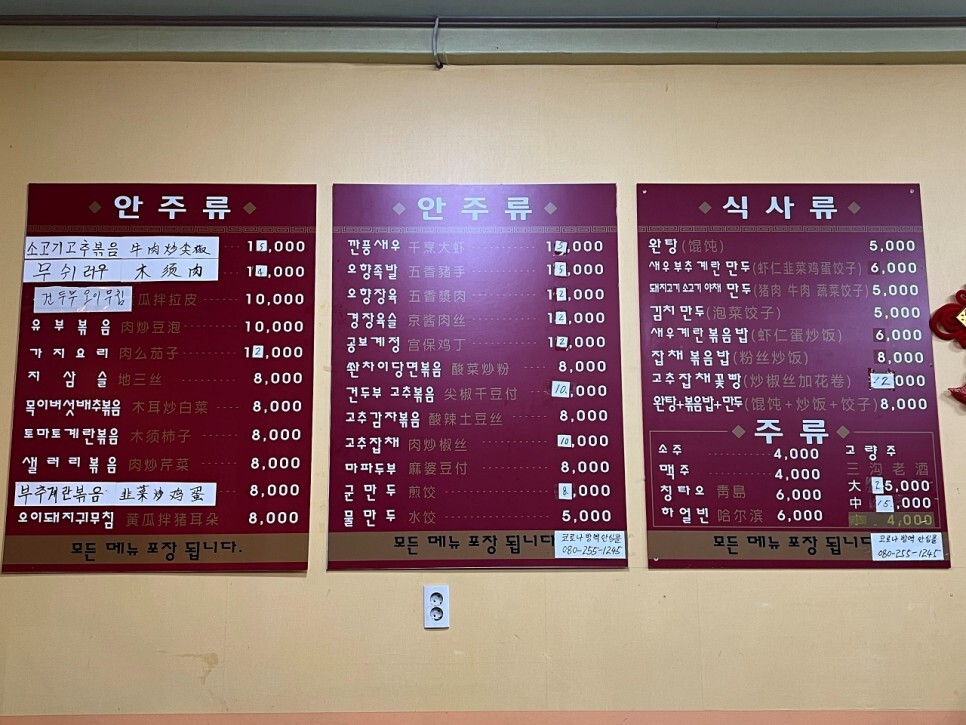 안주류
소고기고추볶음 牛肉炒尖椒 15,000
무쉬러우 木须肉 14,000
건두부오이무침 瓜拌拉皮 10,000
유부볶음 肉炒豆泡 10,000
가지요리 肉么茄子 12,000
지삼슬 地三丝 8,000
목이버섯배추볶음 木耳炒白菜 8,000
토마토계란볶음 木须柿子 8,000
샐러리볶음 肉炒芹菜 8,000
부추계란볶음 韭菜炒鸡蛋 8,000
오이돼지귀무침 黄瓜拌猪耳朵 8,000
모든 메뉴 포장 됩니다.
안주류
깐풍새우 干烹大虾 ,000
오향족발 五香猪手 15,000
오향장육 五香醬肉 12,000
경장육슬 京酱肉丝 12,000
궁보계정 宫保鸡丁 12,000
쏸차이당면볶음 酸菜炒粉 8,000
건두부 고추볶음 尖椒千豆付 10,000
고추감자볶음 酸辣土豆丝 8,000
고추잡채 肉炒椒丝 10,000
마파두부 麻婆豆付 8,000
군만두 煎饺 8,000
물만두 水饺 5,000
모든 메뉴 포장 됩니
코로나 방역 안심콜
080-255-1245
식사류
완탕(馄饨) 5,000
새우부추계란 만두(虾仁韭菜鸡蛋饺子) 6,000
돼지고기 소고기 야채 만두(猪肉 牛肉 蔬菜饺子) 5,000
김치만두(泡菜饺子) 5,000
새우계란볶음밥(虾仁蛋炒饭) 6,000
잡채볶음밥(粉丝炒饭) 8,000
고추잡채꽃빵(炒椒丝加花卷) 12,000
완탕+볶음밥+만두(馄饨+炒饭+饺子) 8,000
주류
소주 4,000
맥주 4,000
칭타오 青島 6,000
하얼빈 哈尔滨 6,000
고량주
三沟老酒
大 25,000
中 15,000
小 4,000
모든 메뉴 포장 됩니
코로나 방역 안심콜
080-255-1245